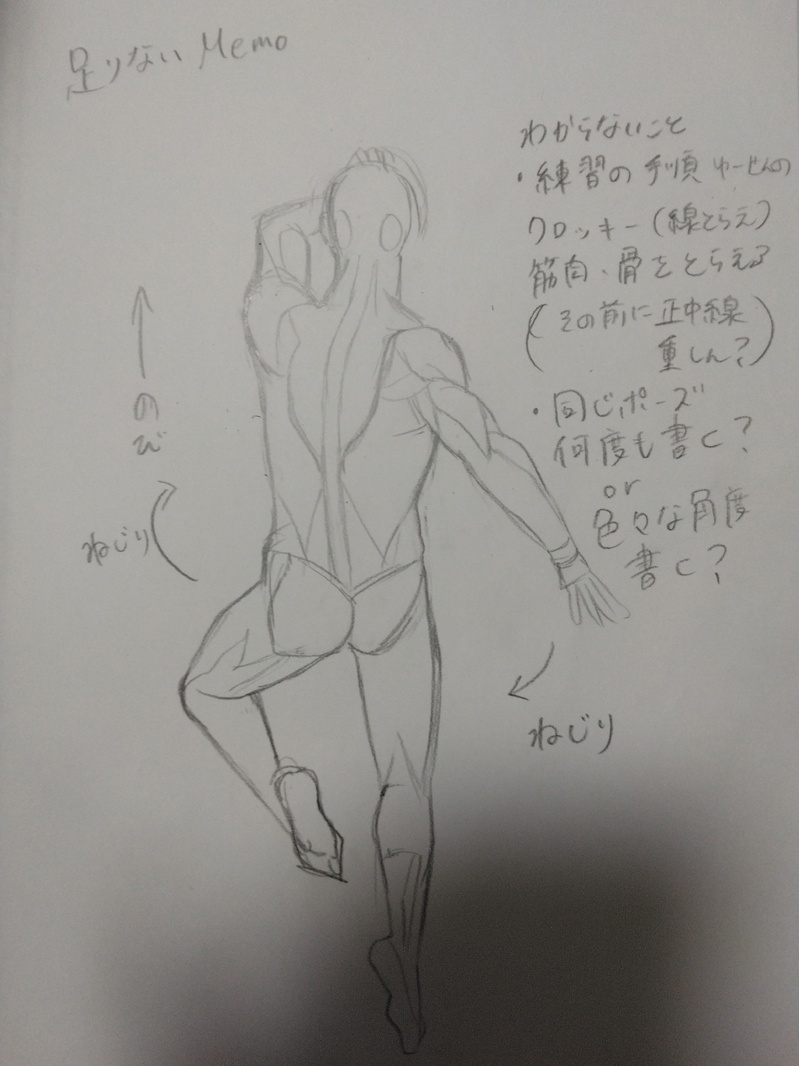 足りない Memo
わからないこと
・練習の手順 ゆーせんの
クロッキー(線とらえ)
筋肉、骨をとらえる
(その前に正中線
重しん?)
・同じポーズ
何度も書く?
or
色々な角度
書く?
←のび
ねじり
ねじり